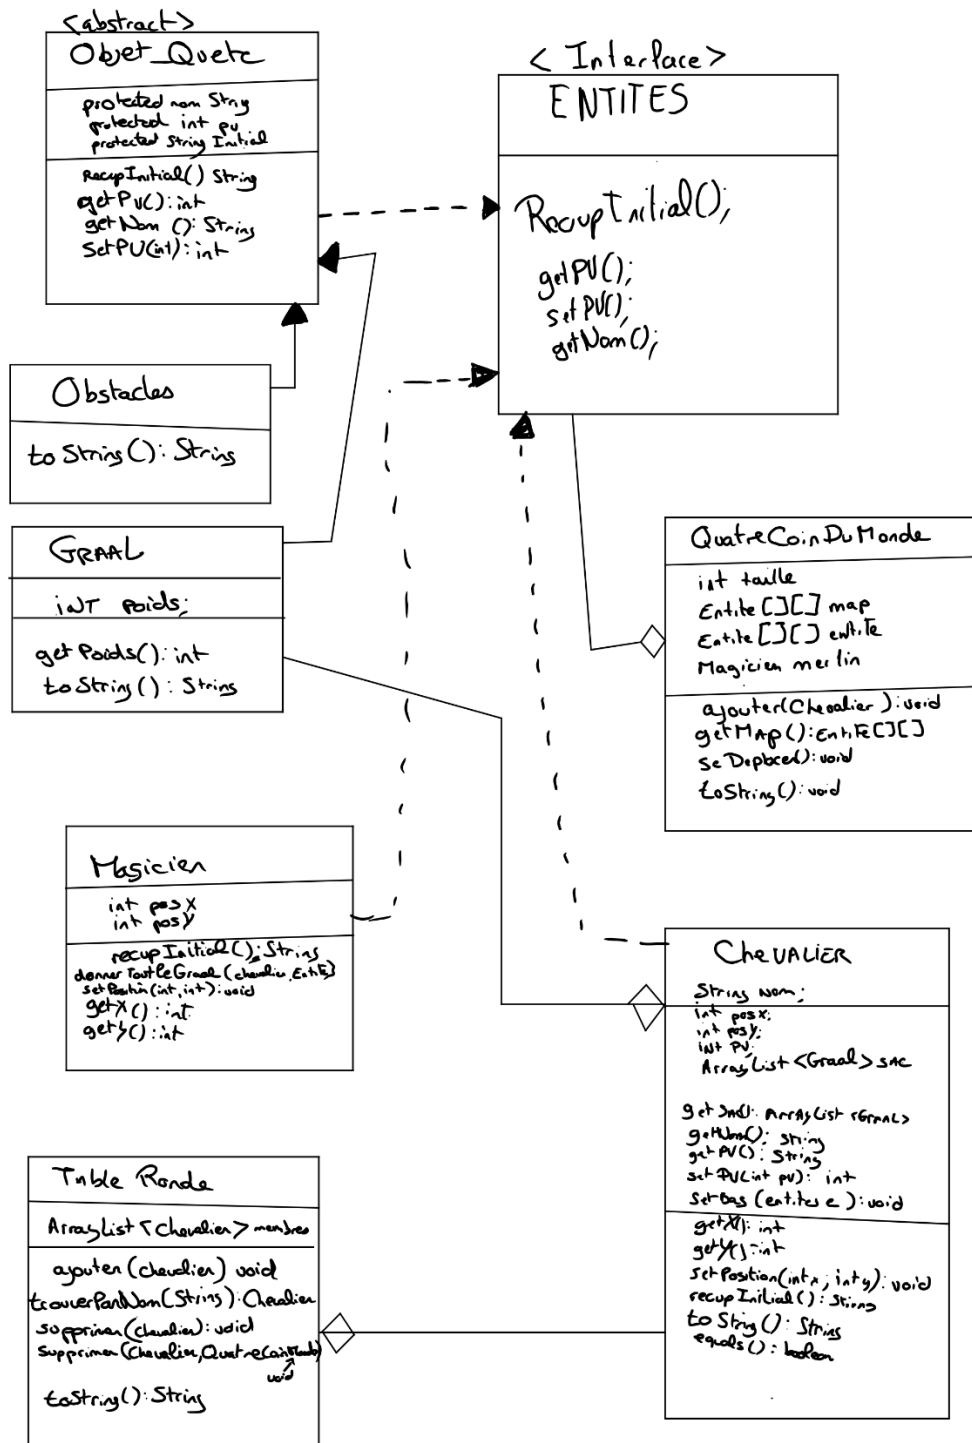 <abstract>
Objet_Quete
protected nom String
protected int pv
protected String Initial
RecupInitial() String
getPV(): int
getNom (): String
SetPV(int): int
< Interface >
ENTITES
RecupInitial();
getPV();
setPV();
getNom();
Obstacles
toString(): String
GRAAL
iNT poids;
getPoids(): int
toString(): String
QuatreCoinDuMonde
int taille
Entite [][] map
Entite [][] entite
Magicien merlin
ajouter(Chevalier): void
getMAp(): EntiTE[][]
seDeplacer(): void
toString(): void
Magicien
int posX
int posY
recupInitial(): String
donnerToutLeGraal(chevalier, Entité)
setPosition(int, int): void
getX(): int
getY(): int
CHEVALIER
String Nom;
int posx;
int posy;
iNt PV;
ArrayList <Graal> SAC
getSac(): ArrAyList <GrAAL>
getNom(): String
getPV(): String
setPV(int pv): int
setBag (entites e): void
getX(): int
getY(): int
setPosition(int x, int y): void
recupInitial(): String
toString(): String
equals(): boolean
Table Ronde
ArrayList <Chevalier> membres
ajouter (chevalier) void
trouverParNom(String): Chevalier
supprimer(chevalier): void
supprimer(Chevalier, QuatreCoinMonde)
void
toString(): String